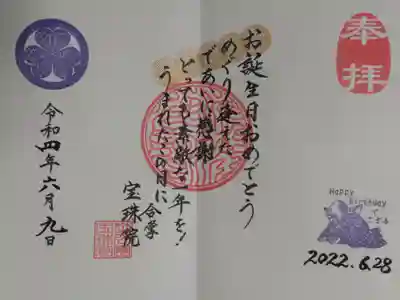 奉拝
お誕生日おめでとう
めぐり逢えた
であいに感謝
とっても素敵な一年を!
うまれたこの月に
合掌
宝珠院
令和四年六月九日
Happy
Birthday
で
ござる
2022.6.28